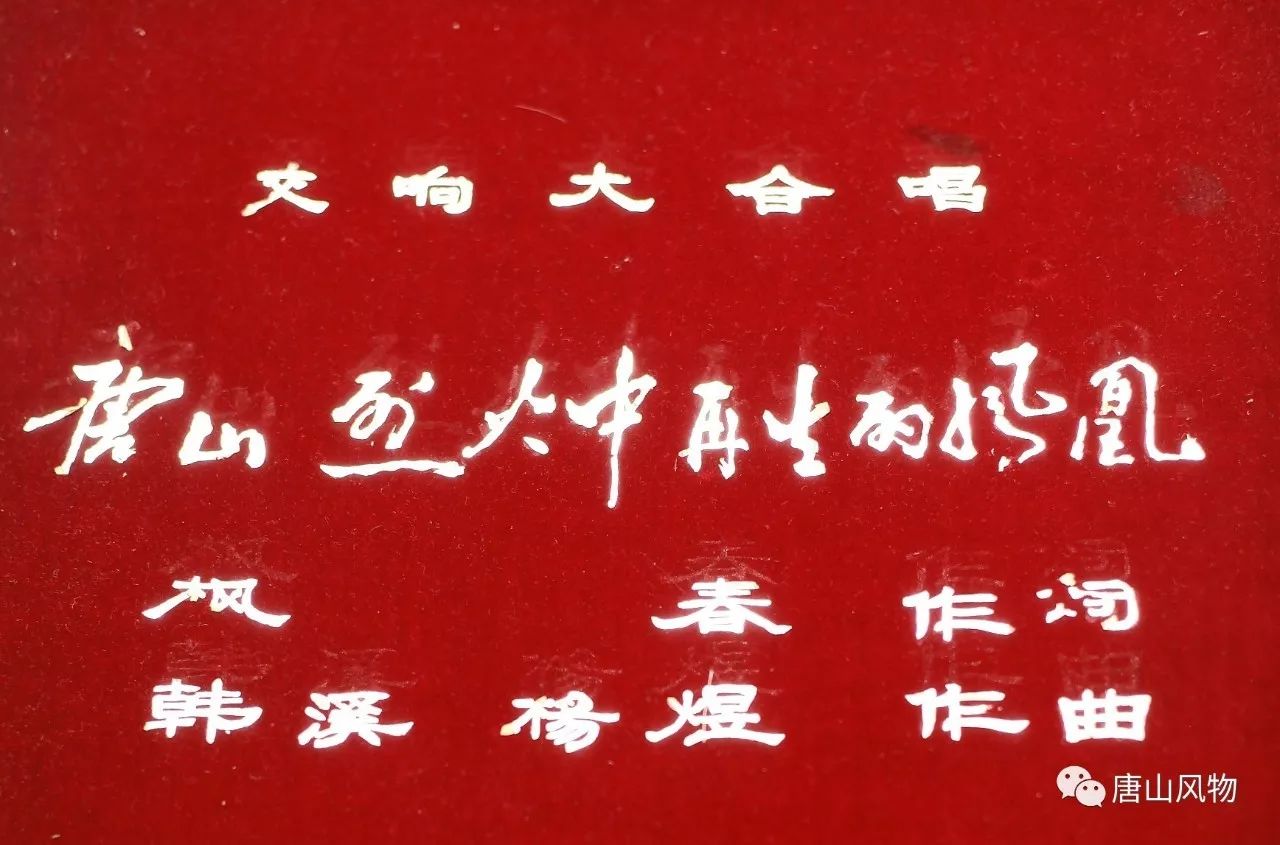 交响大合唱
唐山 烈火中再生的凤凰
枫 春 作词
韩溪 杨煜 作曲
唐山风物